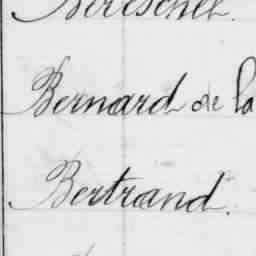 Bernard de la
Bertrand.